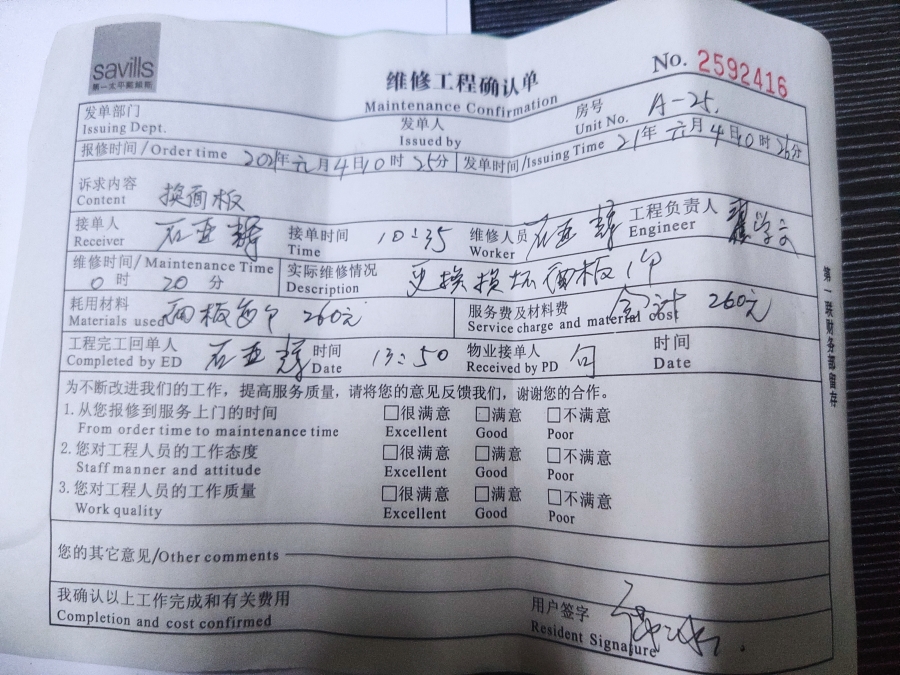 savills
第一太平戴维斯
维修工程确认单
Maintenance Confirmation
No. 2592416
发单部门
Issuing Dept.
发单人
Issued by
房号
Unit No. A-25.
报修时间/Order time 2021年元月4日10时25分
发单时间/Issuing Time 21年元月4日10时26分
诉求内容
Content 换面板
接单人
Receiver 石亚辉
接单时间
Time 10:35
维修人员
Worker 石亚辉
工程负责人
Engineer 翟学文
维修时间/Maintenance Time
0时 20分
实际维修情况
Description 更换损坏面板1个
耗用材料
Materials used 面板 260元
服务费及材料费
Service charge and material cost 合计 260元
工程完工回单人
Completed by ED 石亚辉
时间
Date 13:50
物业接单人
Received by PD
时间
Date
为不断改进我们的工作，提高服务质量，请将您的意见反馈我们，谢谢您的合作。
1.从您报修到服务上门的时间 □很满意 □满意 □不满意
From order time to maintenance time Excellent Good Poor
2.您对工程人员的工作态度 □很满意 □满意 □不满意
Staff manner and attitude Excellent Good Poor
3.您对工程人员的工作质量 □很满意 □满意 □不满意
Work quality Excellent Good Poor
您的其它意见/Other comments
我确认以上工作完成和有关费用
Completion and cost confirmed
用户签字
Resident Signature
第一联财务部留存